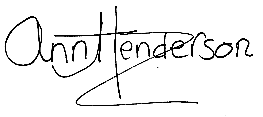 Ann Henderson